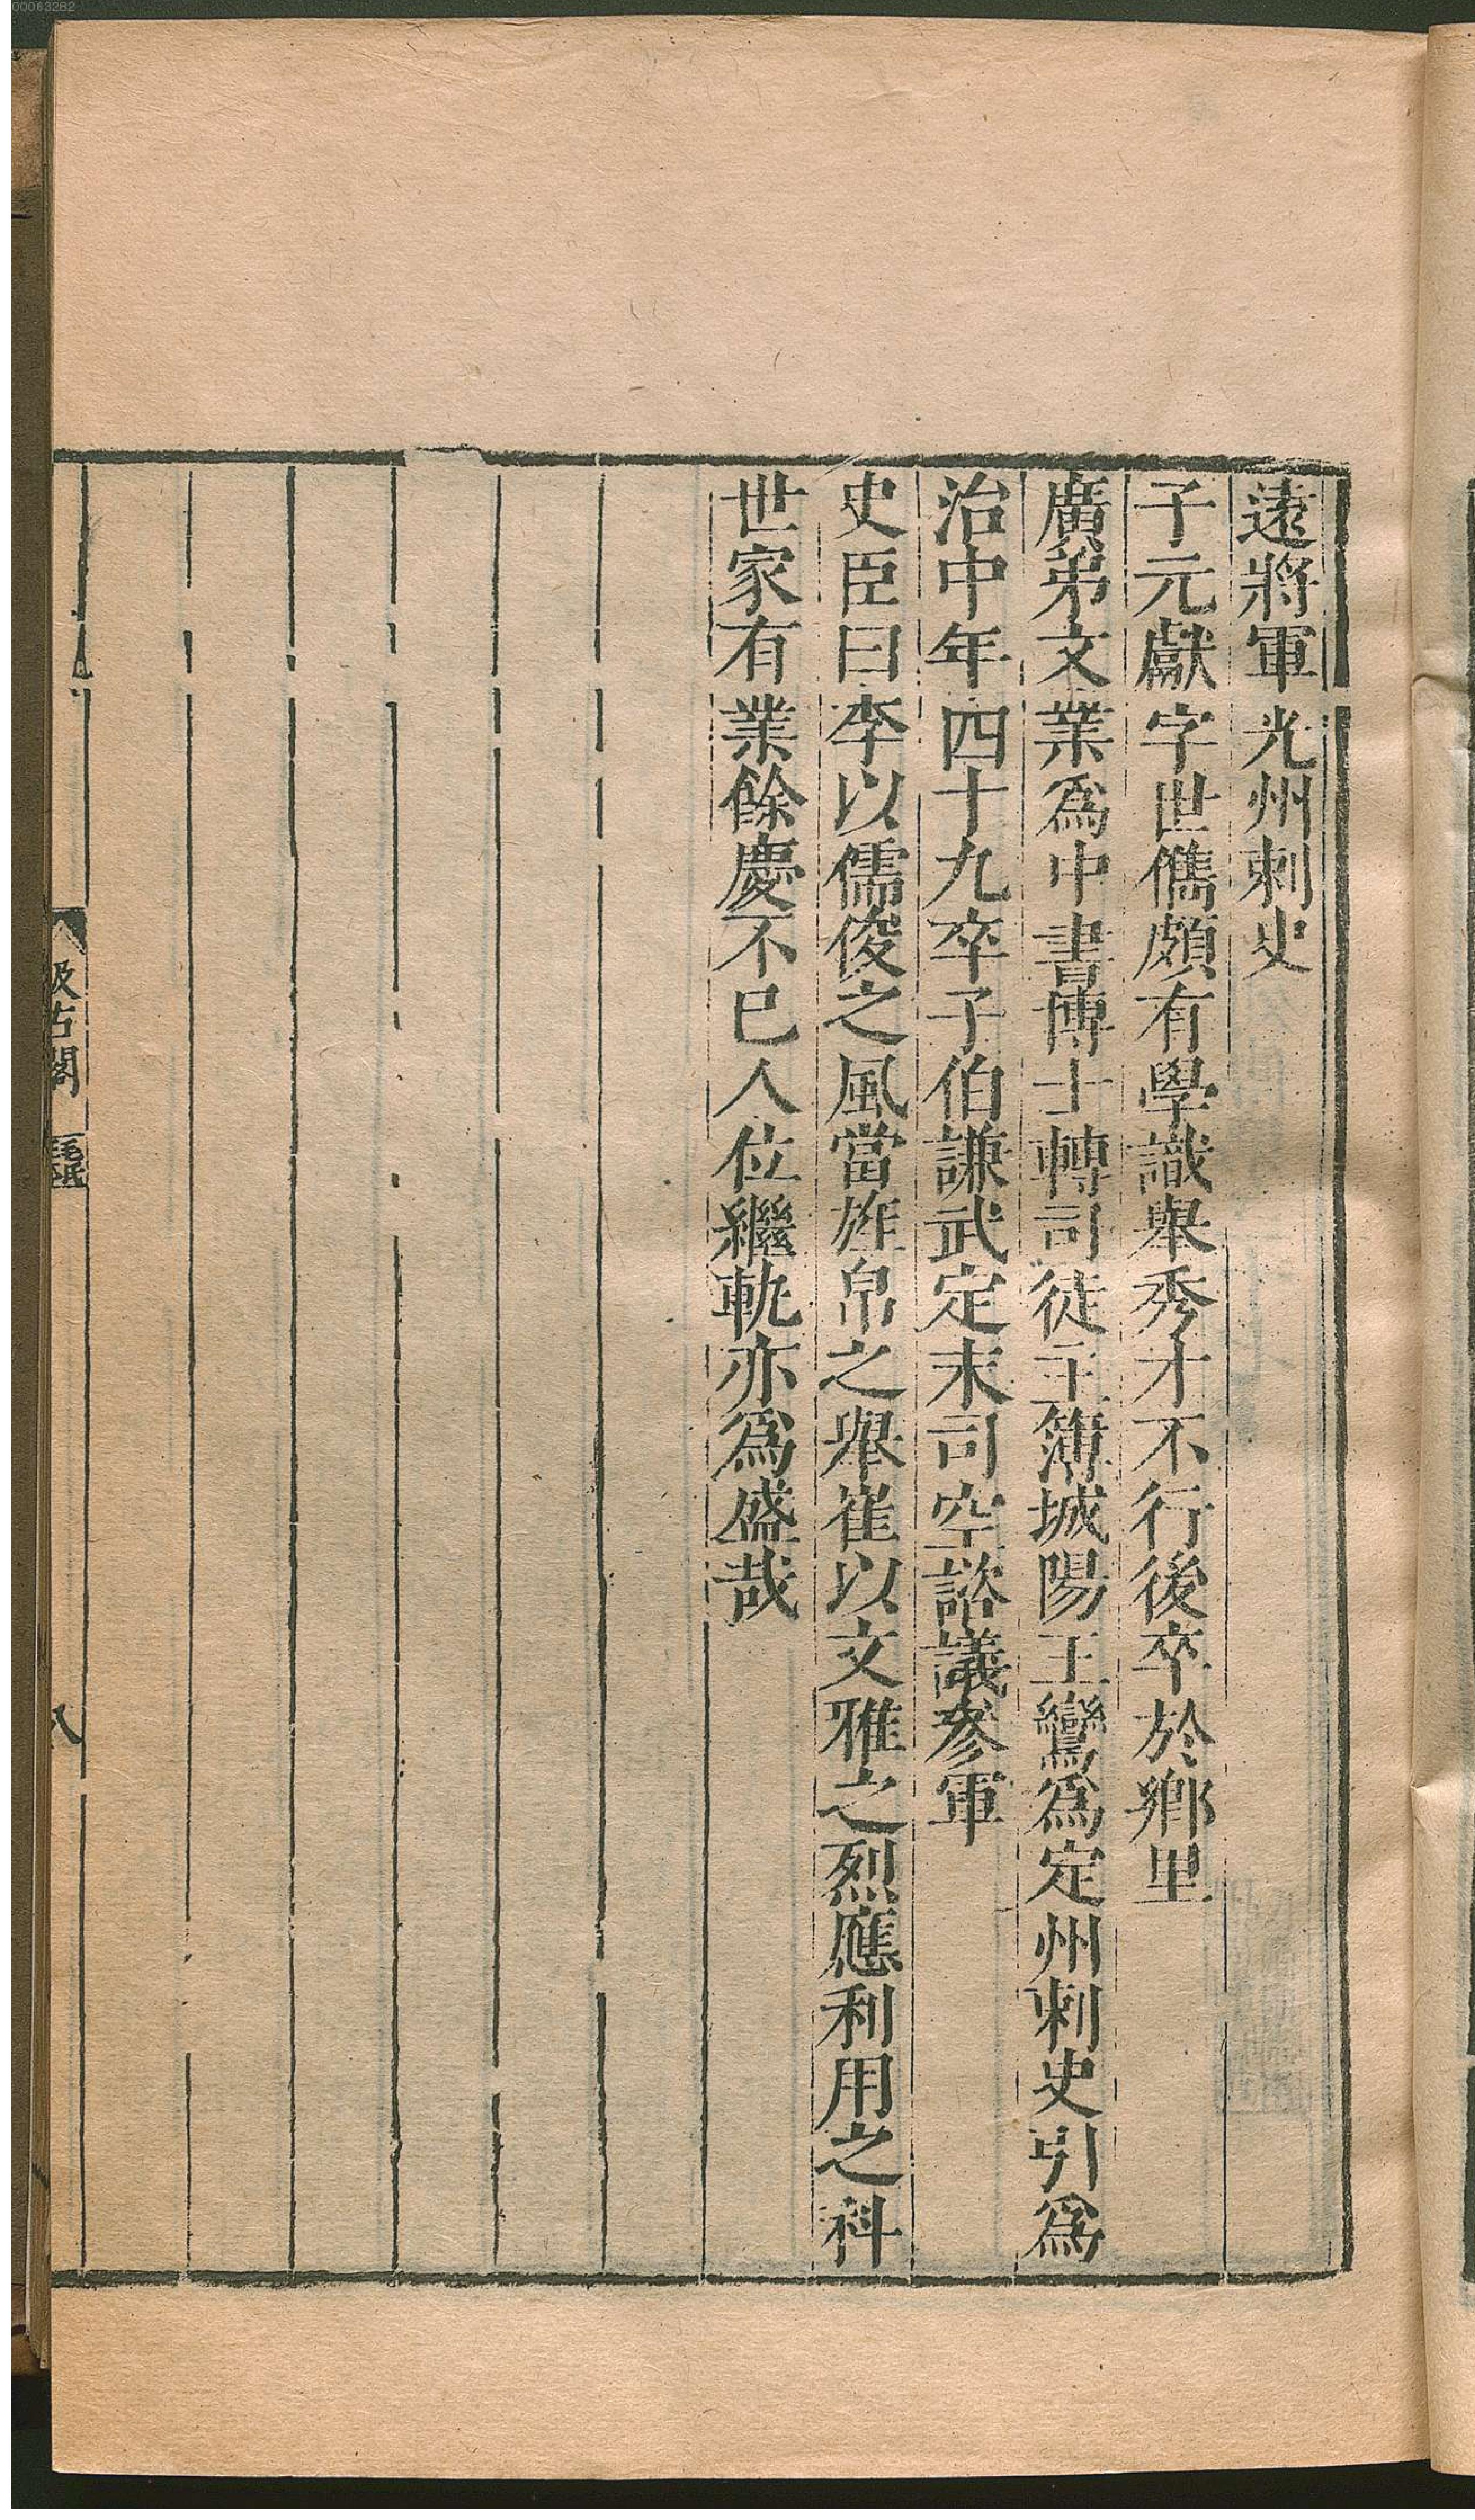 遠將軍光州刺史
子元獻字世儁頗有學識舉秀才不行後卒於鄉里
廣弟文業爲中書博士轉司徒主簿城陽王鸞爲定州刺史引爲
治中年四十九卒子伯謙武定末司空諮議參軍
史臣曰李以儒俊之風當旌帛之舉崔以文雅之烈應利用之科
世家有業餘慶不已人位繼軌亦爲盛哉
汲古閣
八
00063282